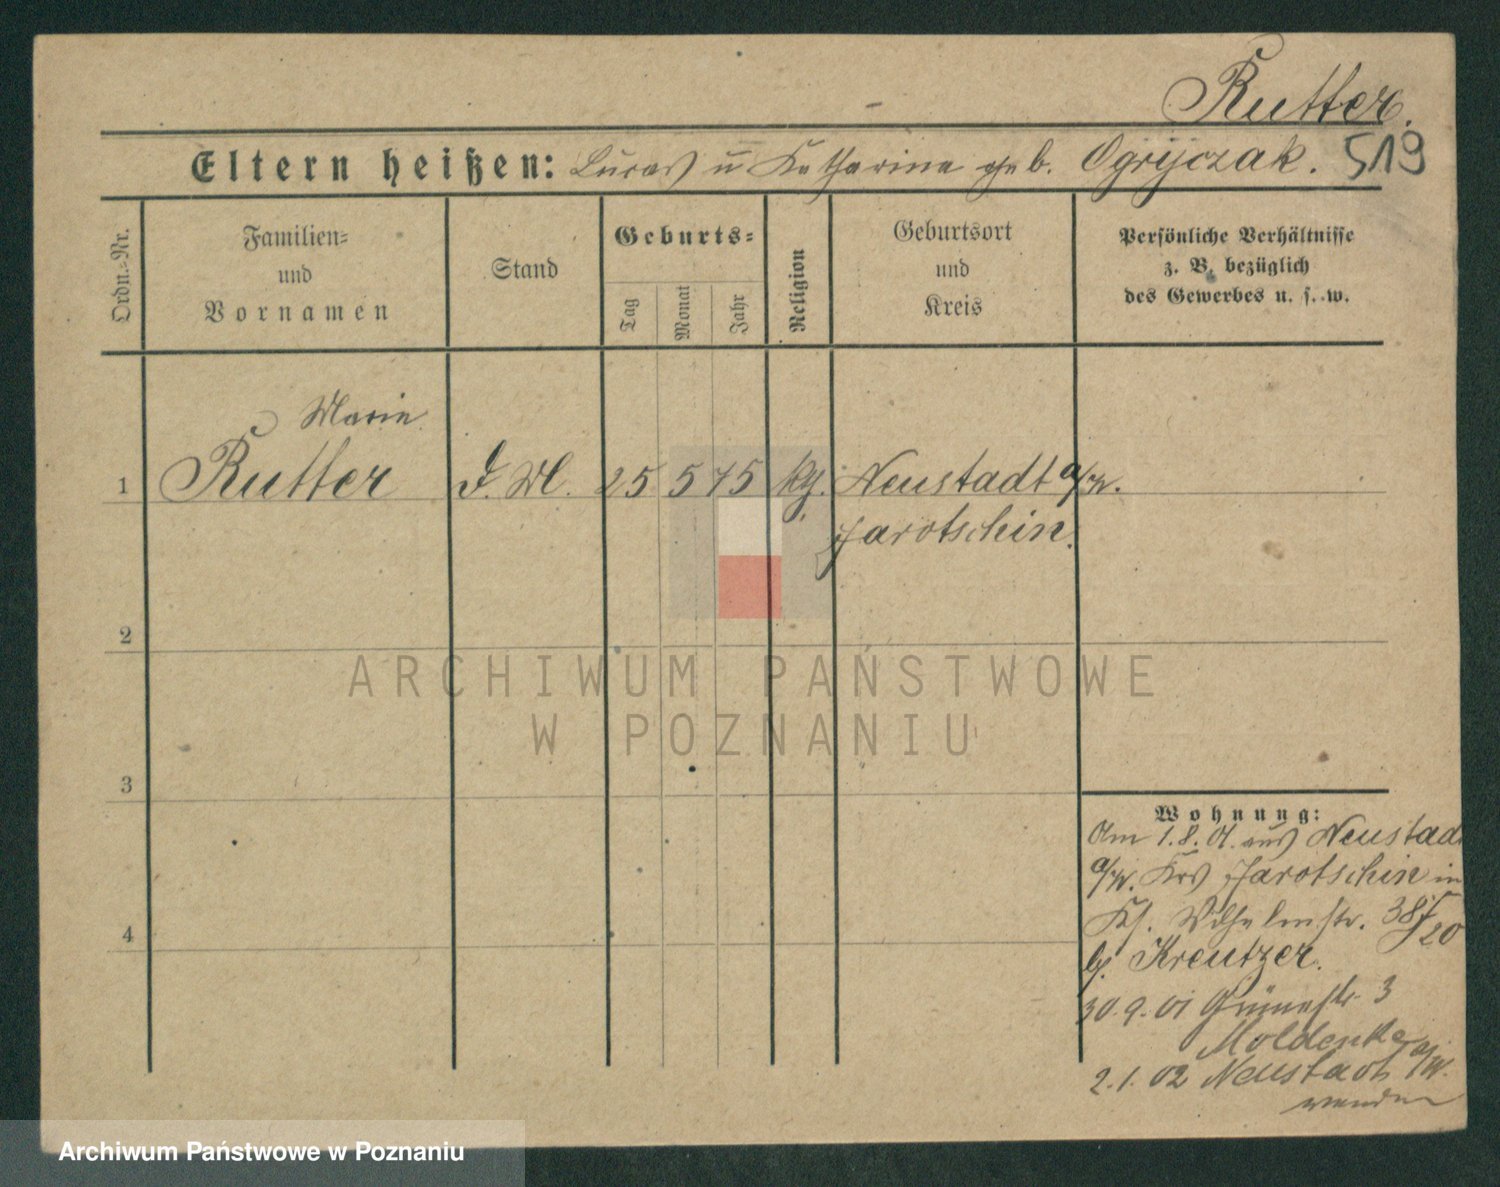 Rutter.
519
Eltern heißen: Lucas u Katharina geb. Ogryczak.
Ordn.-Nr.
Familien=
und
Vornamen
Stand
Geburts=
Tag
Monat
Jahr
Religion
Geburtsort
und
Kreis
Persönliche Verhältnisse
z. B. bezüglich
des Gewerbes u. s. w.
Marie
1 Rutter D. M. 25 5 75 kg. Neustadt a/W.
Jarotschin.
2
3
4
Wohnung:
Am 1.8.01. aus Neustadt
a/W. Krs Jarotschin in
Wilhelmstr. 38
20
b. Kreutzer.
30.9.01 Grünestr. 3
Moldenke
2.1.02 Neustadt a/W.
wenden
ARCHIWUM PAŃSTWOWE
W POZNANIU
Archiwum Państwowe w Poznaniu